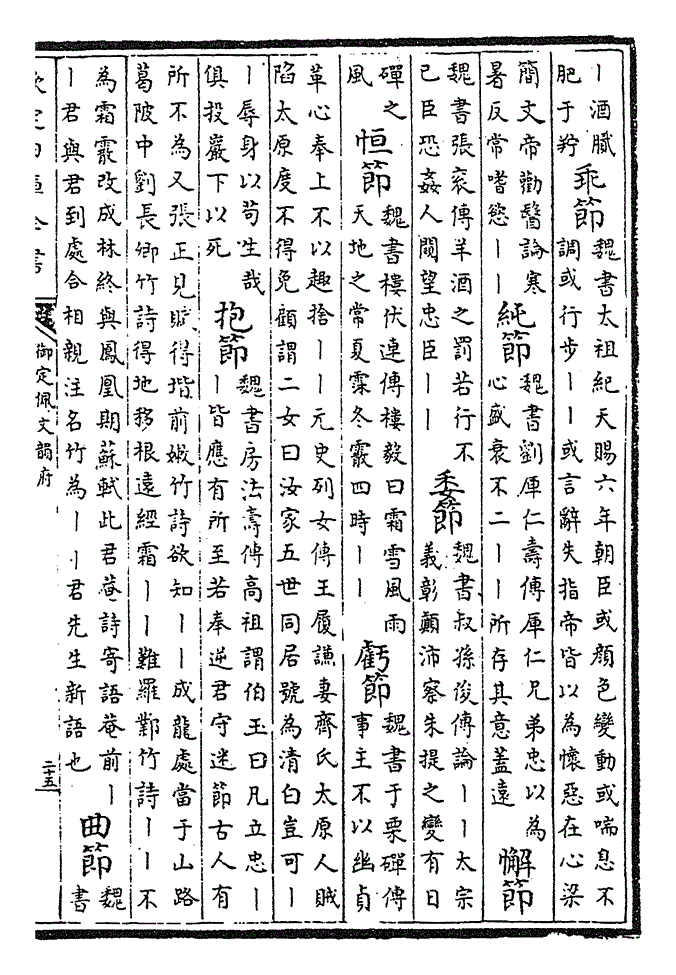 丨酒臓
肥于羜
乖節
魏書太祖紀天賜六年朝臣或顔色變動或喘息不
調或行步丨丨或言辭失指帝皆以為懷惡在心梁
簡文帝勸醫論寒
暑反常嗜慾丨丨
純節
魏書劉厙仁壽傳厙仁兄弟忠以為
心盛衰不二丨丨所存其意蓋遠
懈節
魏書張衮傳羊酒之罰若行不
已臣恐姦人闚望忠臣丨丨
委節
魏書叔孫俊傳論丨丨太宗
義彰顛沛察朱提之變有日
磾之
風
恒節
魏書樓伏連傳樓毅曰霜雪風雨
天地之常夏霂冬霰四時丨丨
虧節
魏書于栗磾傳
事主不以幽貞
革心奉上不以趣捨丨丨元史列女傳王履謙妻齊氏太原人賊
陷太原度不得免顧謂二女曰汝家五世同居號為清白豈可丨
丨辱身以苟生哉
俱投巖下以死
抱節
魏書房法壽傳高祖謂伯玉曰凡立忠丨
丨皆應有所至若奉逆君守迷節古人有
所不為又張正見賦得堦前嫩竹詩欲知丨丨成龍處當于山路
葛陂中劉長卿竹詩得地移根遠經霜丨丨難羅鄴竹詩丨丨不
為霜霰改成林終與鳳凰期蘇軾此君菴詩寄語菴前丨
丨君與君到處合相親注名竹為丨丨君先生新語也
曲節
魏
書
欽定四庫全書
御定佩文韻府
二十五